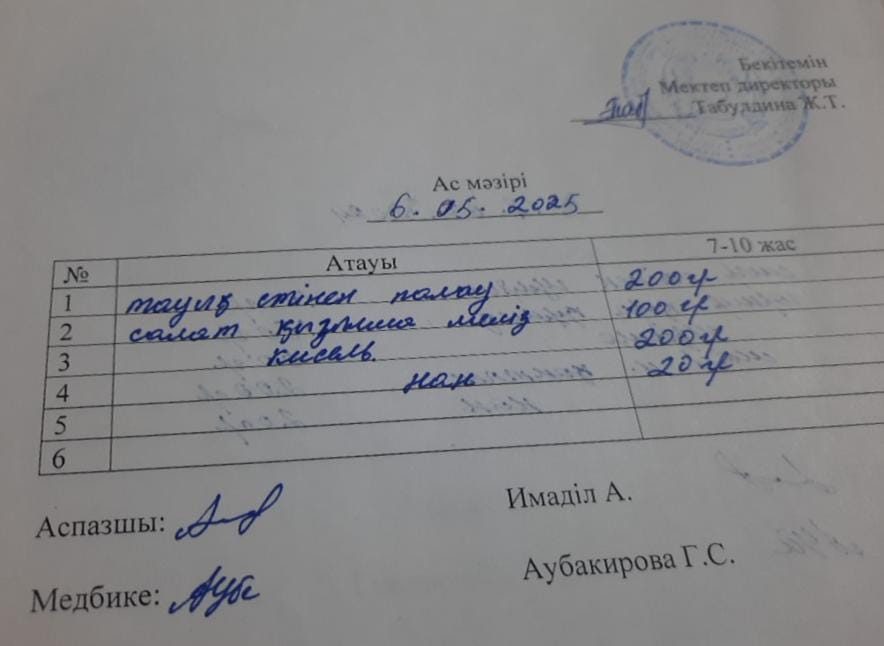 Бекітемін
Мектеп директоры
Табулдина Ж.Т.
Ас мәзірі
6. 05. 2025
№ Атауы 7-10 жас
1 тауық етінен палау 200гр
2 салат қызылша меңіз 100 гр
3 кисель. 200гр
4 нан 20гр
5
6
Аспазшы: Имаділ А.
Медбике: Ауб Аубакирова Г.С.